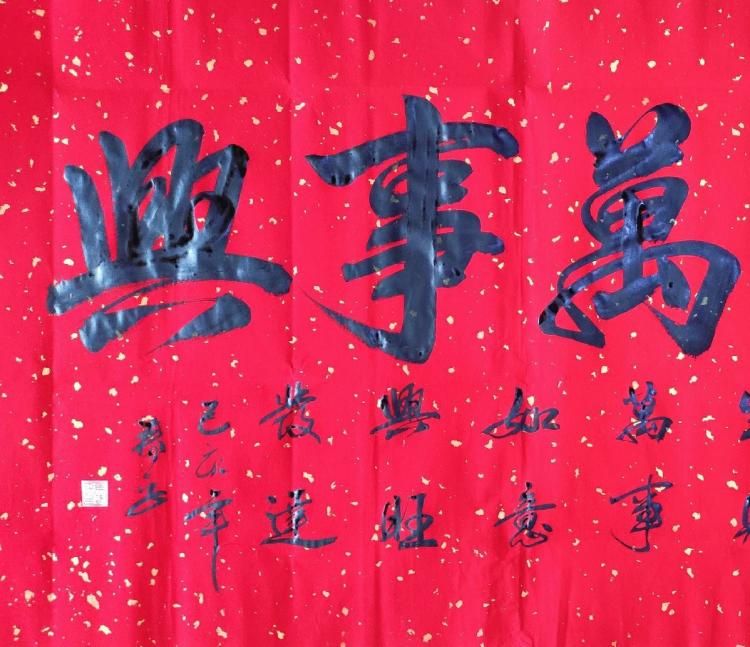 萬事興
萬事
如意
興旺
發達
己亥年